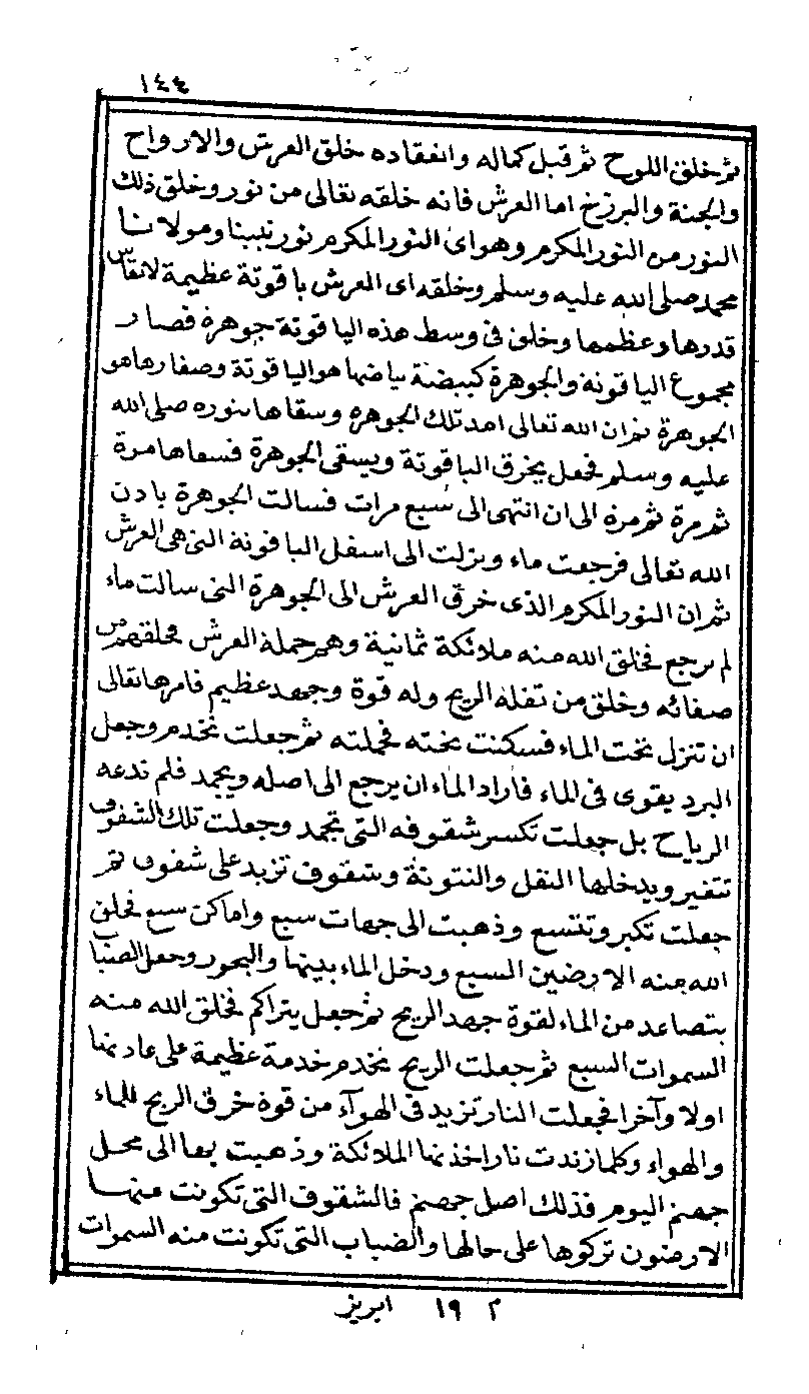 ١٤٤
ثم خلق اللوح ثم قبل كماله وانعقاده خلق العرش والارواح
والجنة والبرزخ اما العرش فانه خلقه تعالى من نور وخلق ذلك
النور من النور المكرم وهو اى النور المكرم نور نبينا ومولانا
محمد صلى الله عليه وسلم وخلقه اى العرش ياقوتة عظيمة لا تقاس
قدرها وعظمها وخلق فى وسط هذه الياقوتة جوهرة فصار
مجموع الياقوتة والجوهرة كبيضة بياضها هو الياقوتة وصفارها هو
الجوهرة ثم ان الله تعالى امد تلك الجوهرة وسقاها بنوره صلى الله
عليه وسلم فجعل يخرق الياقوتة ويسقى الجوهرة فسقاها مرة
ثم مرة ثم مرة الى ان انتهى الى سبع مرات فسالت الجوهرة باذن
الله تعالى فرجعت ماء ونزلت الى اسفل الياقوتة التى هى العرش
ثم ان النور المكرم الذى خرق العرش الى الجوهرة التى سالت ماء
لم يرجع فخلق الله منه ملائكة ثمانية وهم حملة العرش فخلقهم من
صفائه وخلق من ثقله الريح وله قوة وجهد عظيم فامرها تعالى
ان تنزل تحت الماء فسكنت تحته فحملته ثم جعلت تخدم وجعل
البرد يقوى فى الماء فأراد الماء ان يرجع الى اصله ويجمد فلم تدعه
الرياح بل جعلت تكسر شقوفه التى تجمد وجعلت تلك الشقوف
تتغير ويدخلها الثقل والنتونة وشقوف تزيد على شقوف ثم
جعلت تكبر وتتسع وذهبت الى جهات سبع واماكن سبع فخلق
الله منه الارضين السبع ودخل الماء بينها والبحور وجعل الضباب
يتصاعد من الماء لقوة جهد الريح ثم جعل يتراكم فخلق الله منه
السموات السبع ثم جعلت الريح تخدم خدمة عظيمة على عادتها
اولا وآخرا فجعلت النار تزيد فى الهوآء من قوة خرق الريح للماء
والهواء وكلما زندت نارا اخذتها الملائكة وذهبت بها الى محل
جهنم اليوم فذلك اصل جهنم فالشقوف التى تكونت منها
الارضون تركوها على حالها والضباب التى تكونت منه السموات
م ١٩ ابريز